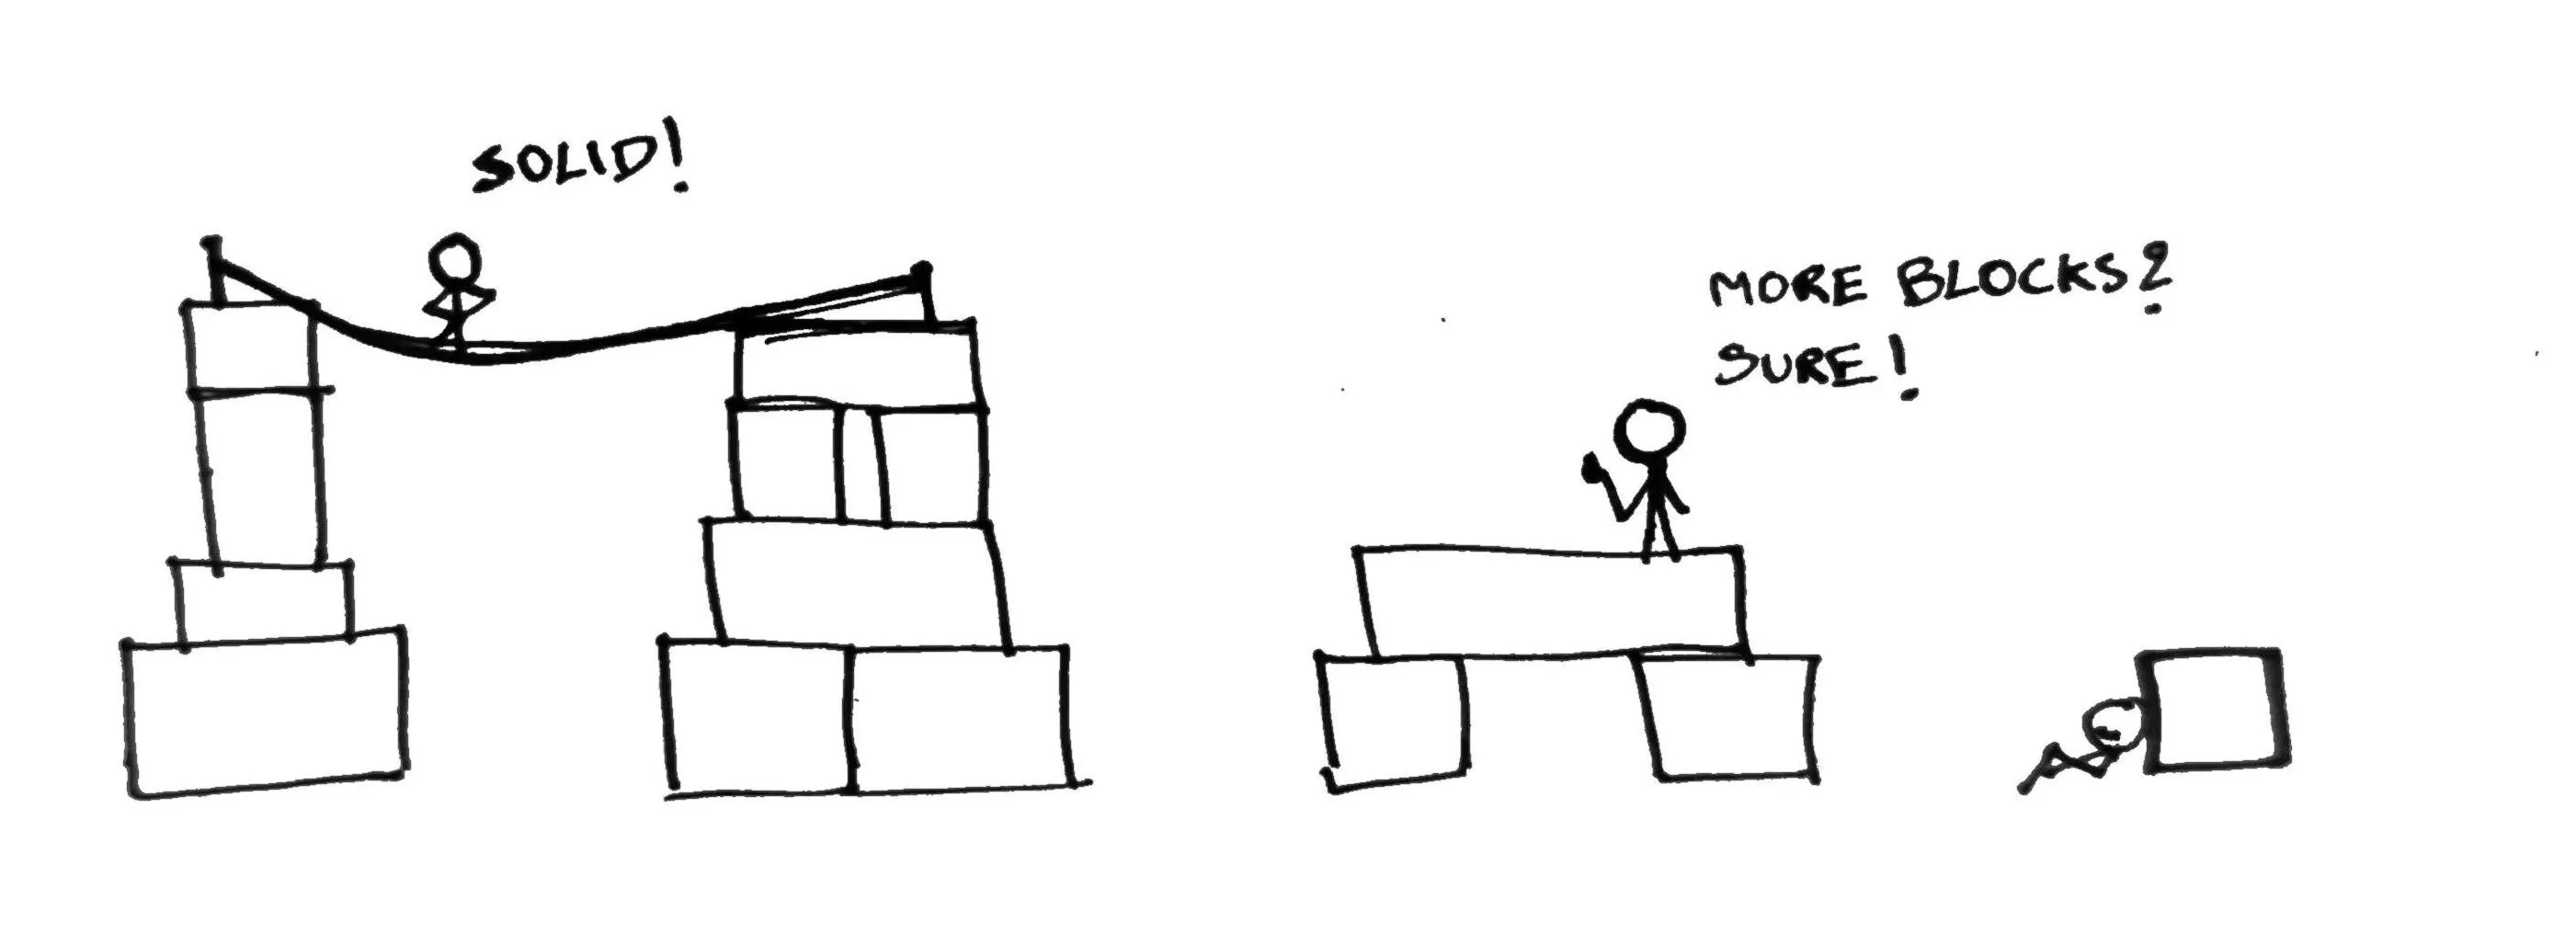 SOLID!
MORE BLOCKS?
SURE!